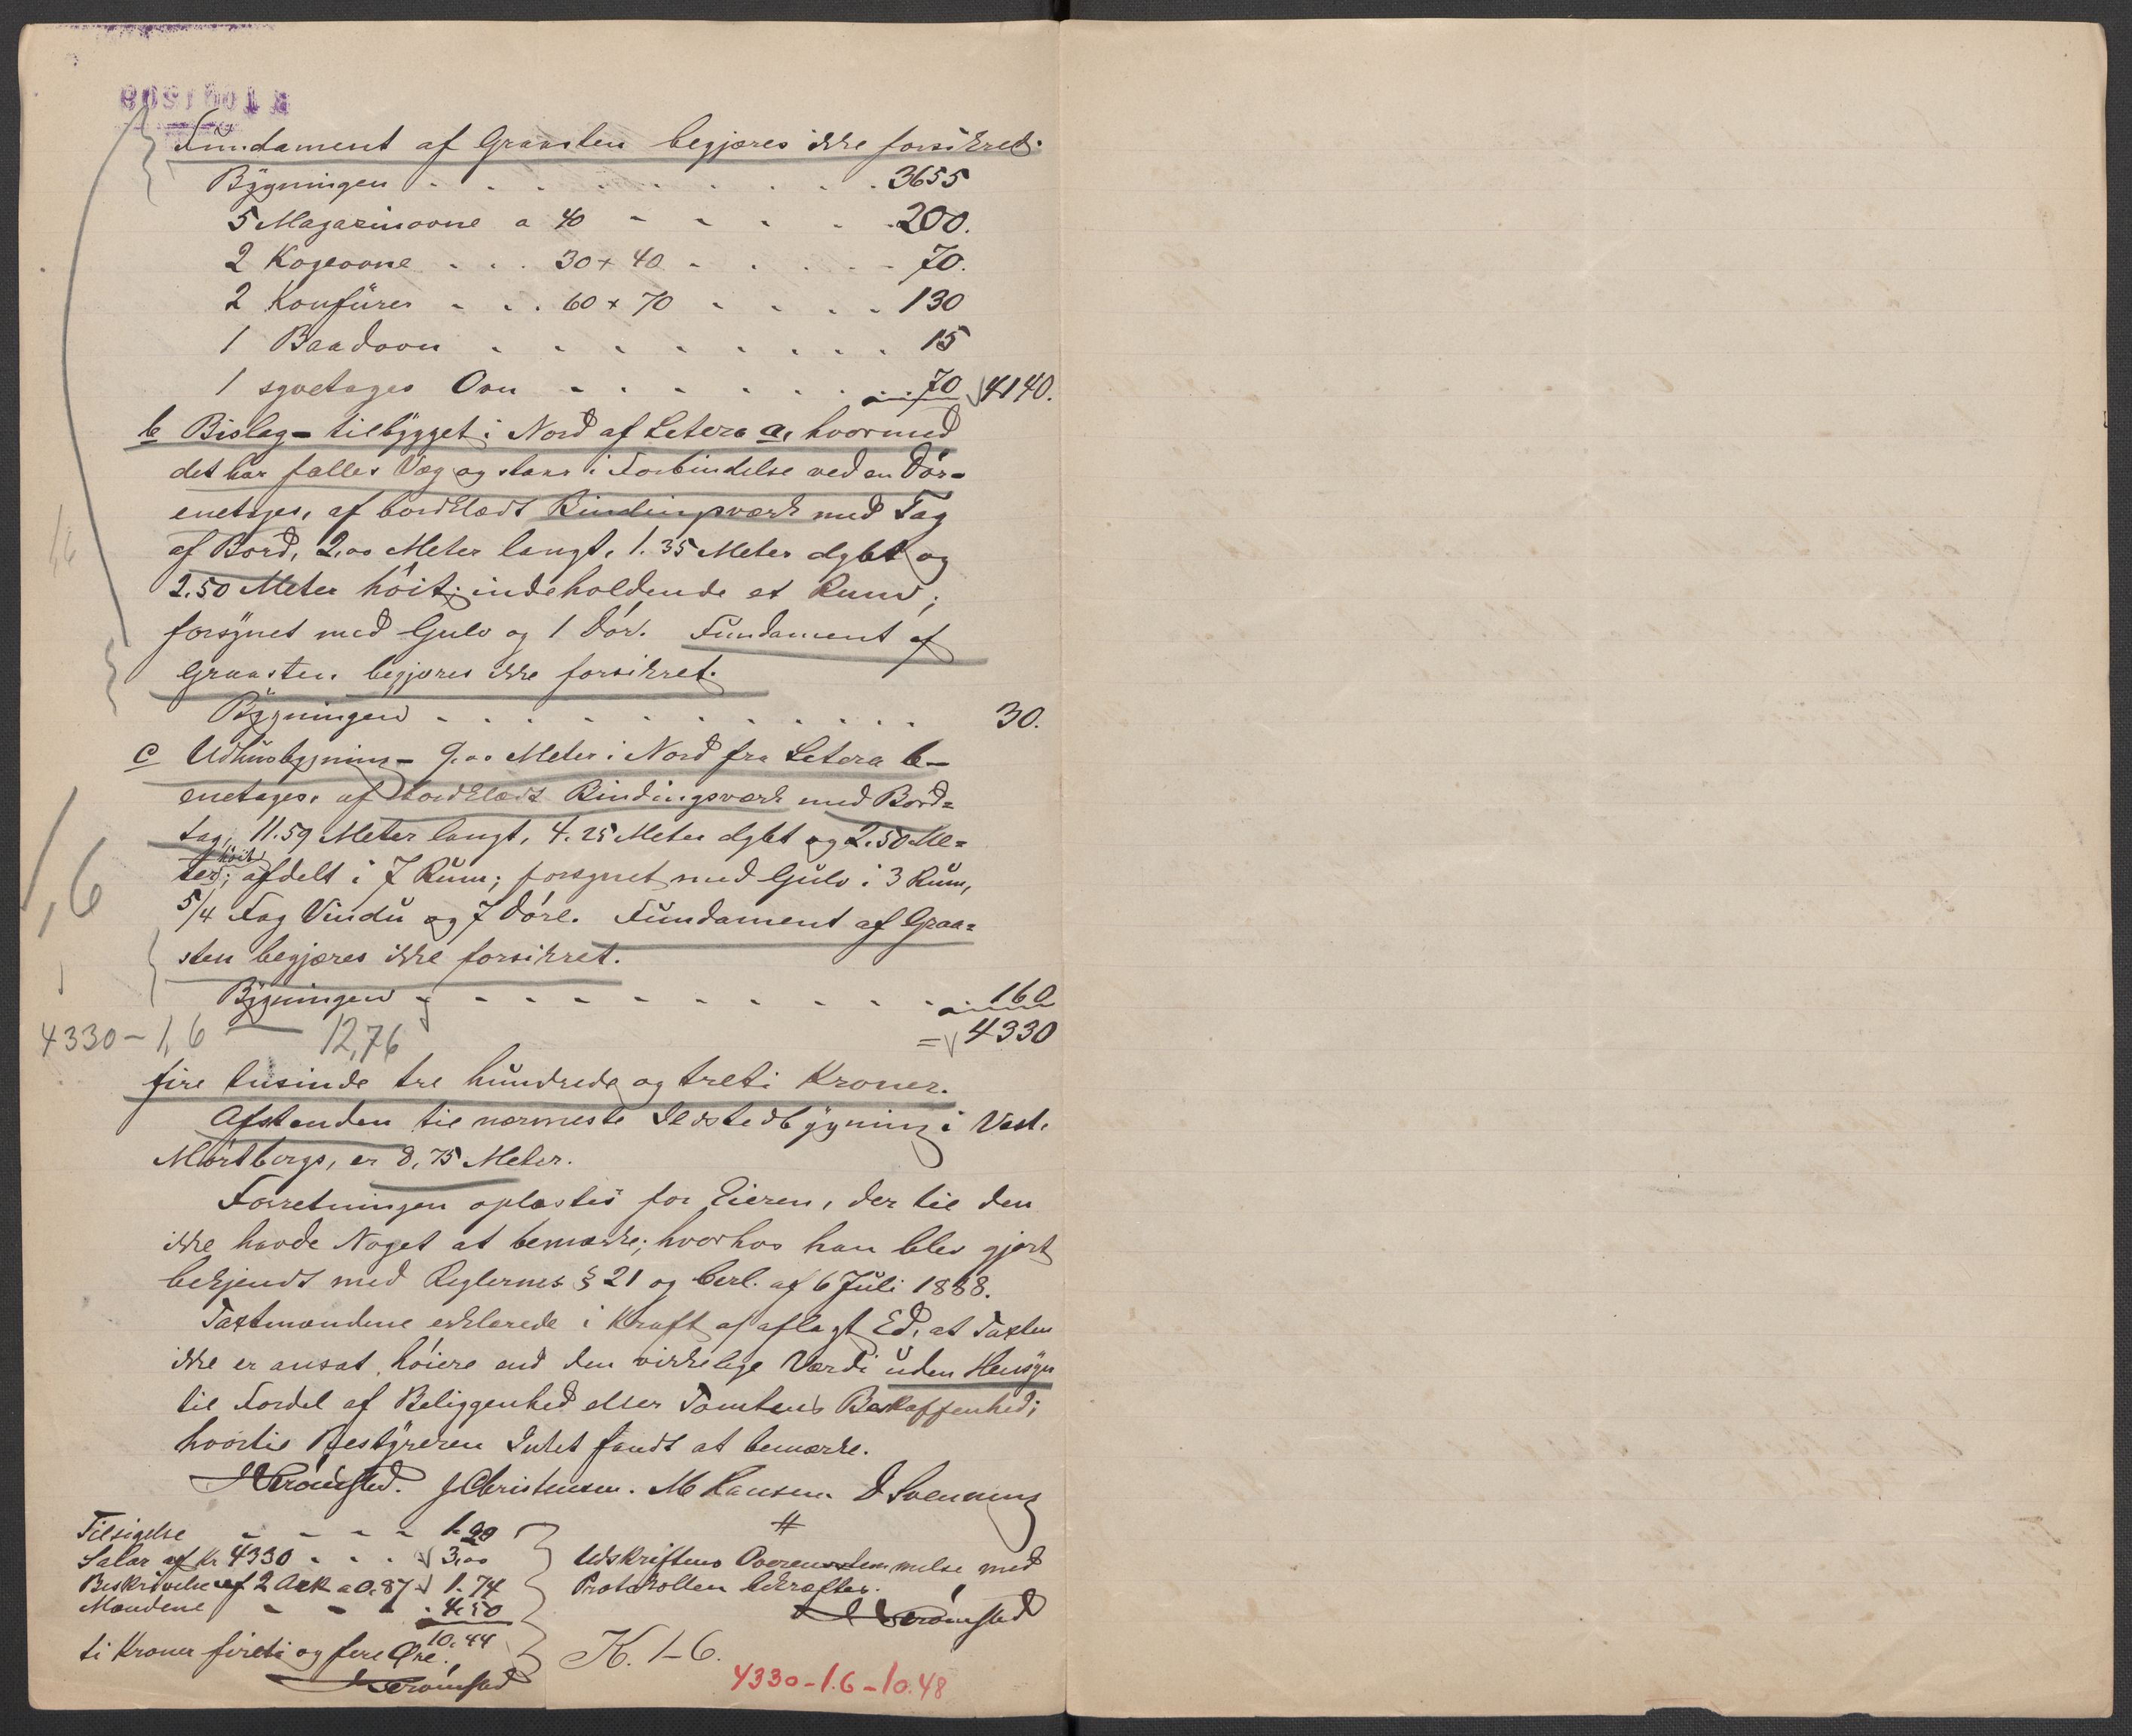 Fundament af Graasten begjæres ikke forsikret.
Bygningen . . . . . . . . . 3655
5 Magazinovne a 40 - - - - 200.
2 Kogeovne . . . 30 + 40 - . . . - 70.
2 Komfürer - . . 60 + 70 . . . . 130
1 Baadovn . . . . . . . . . 15
1 syvetages Ovn - . . . . . . 70 4140.
b Bislag - tilbygget i Nord af Letera a, hvormed
det har fælles Væg og staar i Forbindelse ved en Dör-
enetages, af bordklædt Bindingsværk med Tag
af Bord, 2,00 Meter langt, 1.35 Meter dybt og
2.50 Meter höit; indeholdende et Rum;
forsynet med Gulv og 1 Dör. Fundament af
Graasten begjæres ikke forsikret.
Bygningen . . . . . . . . . . . 30.
c Udhusbygning - 9,00 Meter i Nord fra Letera b -
enetages, af bordklædt Bindingsværk med Bord=
tag, 11.59 Meter langt, 4.25 Meter dybt og 2.50 Me=
höit
ter; afdelt i 7 Rum; forsynet med Gulv i 3 Rum,
5/4 Fag Vindu og 7 Döre. Fundament af Graa=
sten begjæres ikke forsikret.
1,6
Bygningen - - - - - - - - - . 160
4330 - 1,6 — 12,76 = 4330
fire tusinde tre hundrede og treti Kroner.
Afstanden til nærmeste Ildstedbygning i Vest,
Mörtbergs, er 8,75 Meter.
Forretningen oplæstes for Eieren, der til den
ikke havde Noget at bemærke; hvorhos han blev gjort
bekjendt med Reglernes § 21 og Cerl. af 6 Juli 1888.
Taxtmændene erklærede i Kraft af aflagt Ed, at Taxten
ikke er ansat höiere end den virkelige Værdi uden Hensyn
til Fordel af Beliggenhed eller Tomtens Beskaffenhed;
hvortil Bestyreren Intet fandt at bemærke.
Strömsted. J Christensen. M Hansen D Svenning
Tilsigelse - - - - 1.20
Salær af Kr 4330 . . . 3,00
Beskrivelse af 2 Ark a 0.87 1.74
Mændene - - - . 4.50
10.44
ti Kroner fireti og fire Øre.
Strömsted
#
Udskriftens Overensstemmelse med
Protokollen bekræftes.
Strömsted
K. 1-6.
4330 - 1.6 - 10.48